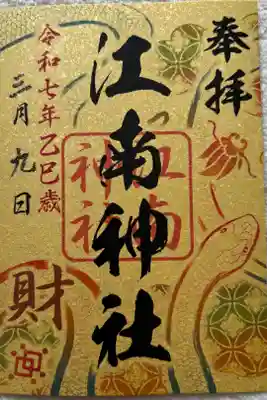 奉拝
江南神社
江南
神社
令和七年乙巳歳
三月九日
財